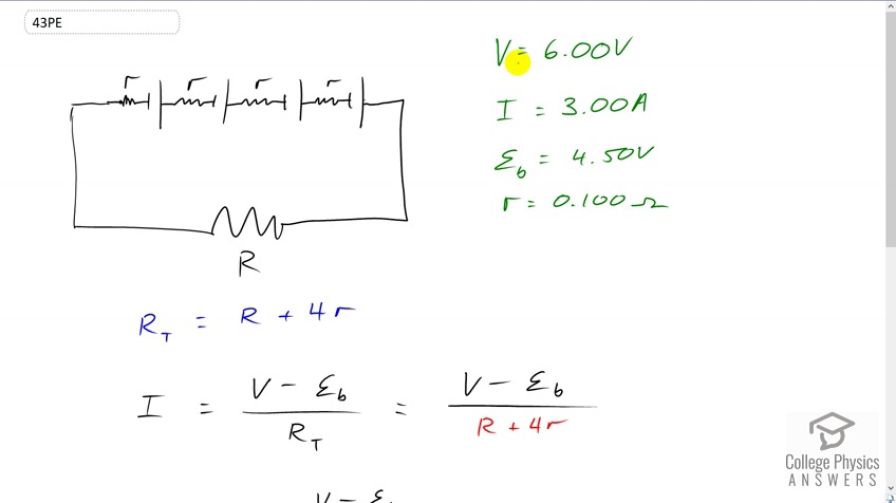 43PE
r r r r
V = 6.00V
I = 3.00A
Ɛb = 4.50V
r = 0.100 Ω
R
RT = R + 4r
I = V - Ɛb / RT = V - Ɛb / R + 4r
V - Ɛ
College Physics
ANSWERS